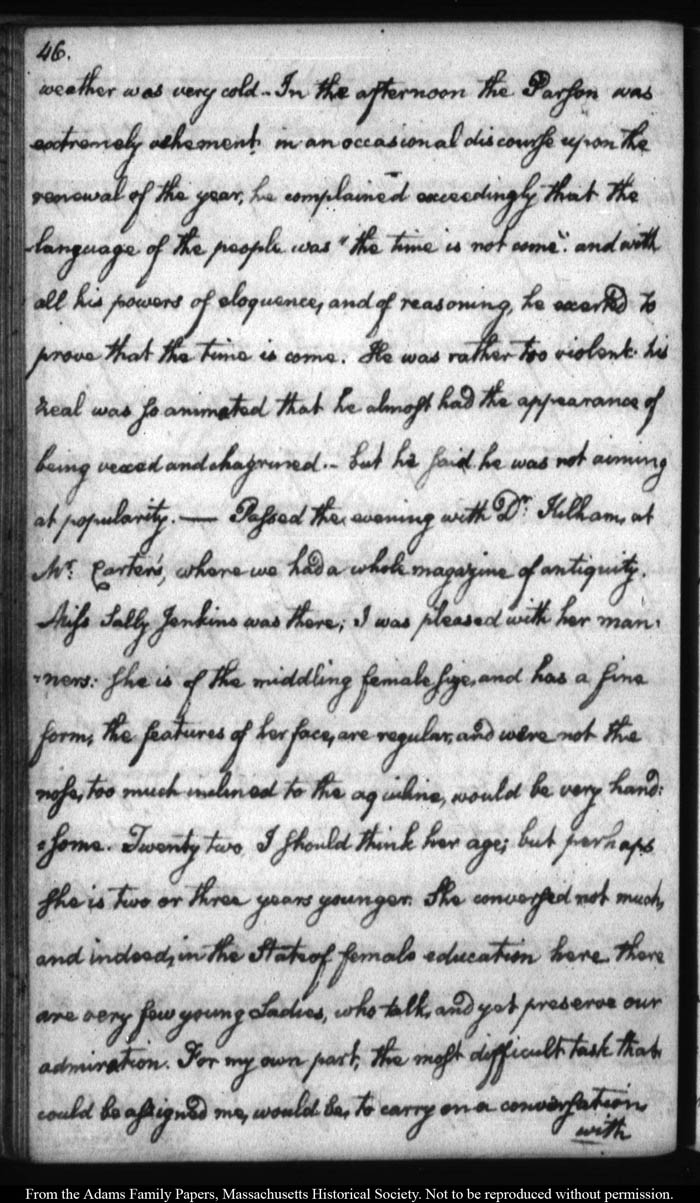 46.
weather was very cold. In the afternoon the Parson was
extremely vehement, in an occasional discourse upon the
renewal of the year, he complained exceedingly that the
language of the people was "the time is not come": and with
all his powers of eloquence, and of reasoning, he exerted to
prove that the time is come. He was rather too violent: his
zeal was so animated that he almost had the appearance of
being vexed and chagrined.- but he said he was not aiming
at popularity. — Passed the evening with Dr. Kilham, at
Mr. Carter's, where we had a whole magazine of antiquity.
Miss Sally Jenkins was there; I was pleased with her man:
:ners: she is of the middling female size, and has a fine
form, the features of her face, are regular, and were not the
nose, too much inclined to the aquiline, would be very hand:
:some. Twenty two, I should think her age; but perhaps
she is two or three years younger. She conversed not much,
and indeed, in the State of female education here, there
are very few young Ladies, who talk, and yet preserve our
admiration. For my own part, the most difficult task that
could be assigned me, would be, to carry on a conversation
with
From the Adams Family Papers, Massachusetts Historical Society. Not to be reproduced without permission.